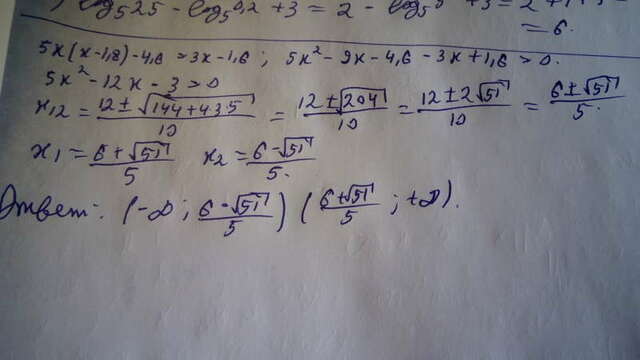 log₅25 - log₅0,2 + 3 = 2 -
= 6.
5x(x-1,8)-4,6 > 3x-1,6 ; 5x² - 9x - 4,6 - 3x + 1,6 > 0.
5x² - 12x - 3 > 0
x₁,₂ = (12 ± √(144+4·3·5))/10 = (12 ± √204)/10 = (12 ± 2√51)/10 = (6 ± √51)/5.
x₁ = (6 + √51)/5 x₂ = (6 - √51)/5.
Ответ: (-∞ ; (6 - √51)/5) ((6 + √51)/5 ; +∞).